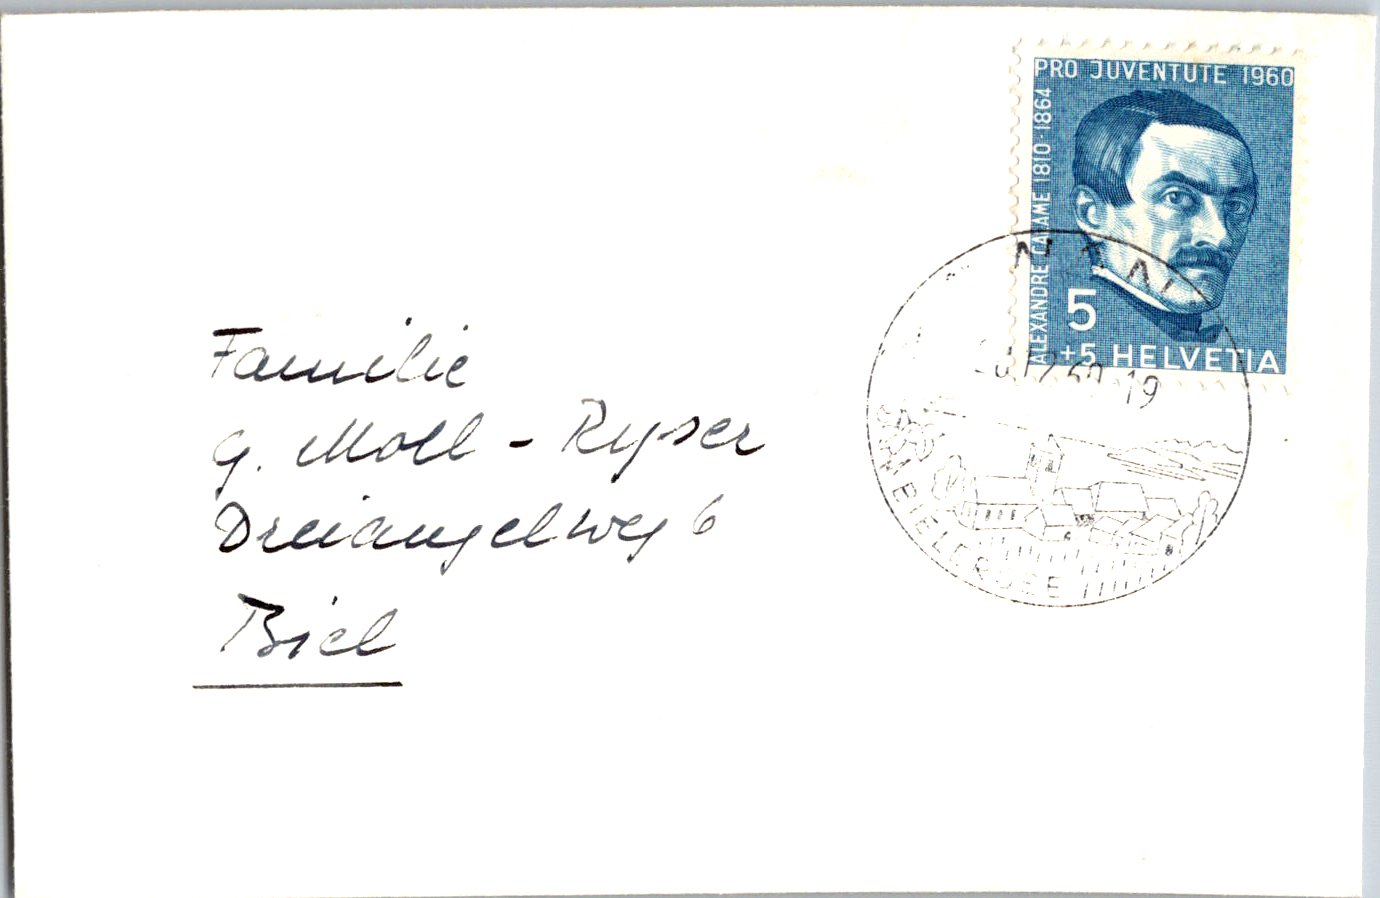 PRO JUVENTUTE 1960
ALEXANDRE CALAME 1810-1864
5
+5 HELVETIA
60-19
AM BIELERSEE
Familie
G. Moll - Ryser
Dreiangelweg 6
Biel